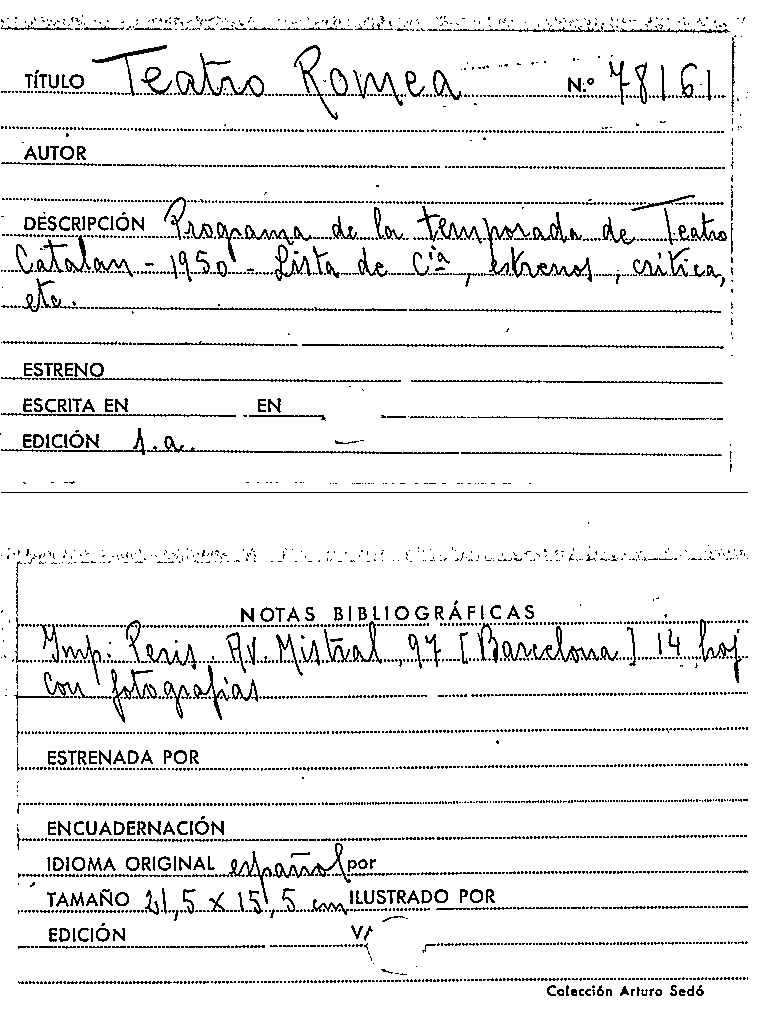 TÍTULO Teatro Romea N.º 78161
AUTOR
DESCRIPCIÓN Programa de la temporada de Teatro
Catalan - 1950 - Lista de Cía, estrenos, crítica,
etc.
ESTRENO
ESCRITA EN EN
EDICIÓN 1.a.
NOTAS BIBLIOGRÁFICAS
Imp: Peris. Av. Mistral, 97 [Barcelona] 14 hoj
con fotografias
ESTRENADA POR
ENCUADERNACIÓN
IDIOMA ORIGINAL español por
TAMAÑO 21,5 x 15,5 cm ILUSTRADO POR
EDICIÓN
Colección Arturo Sedó